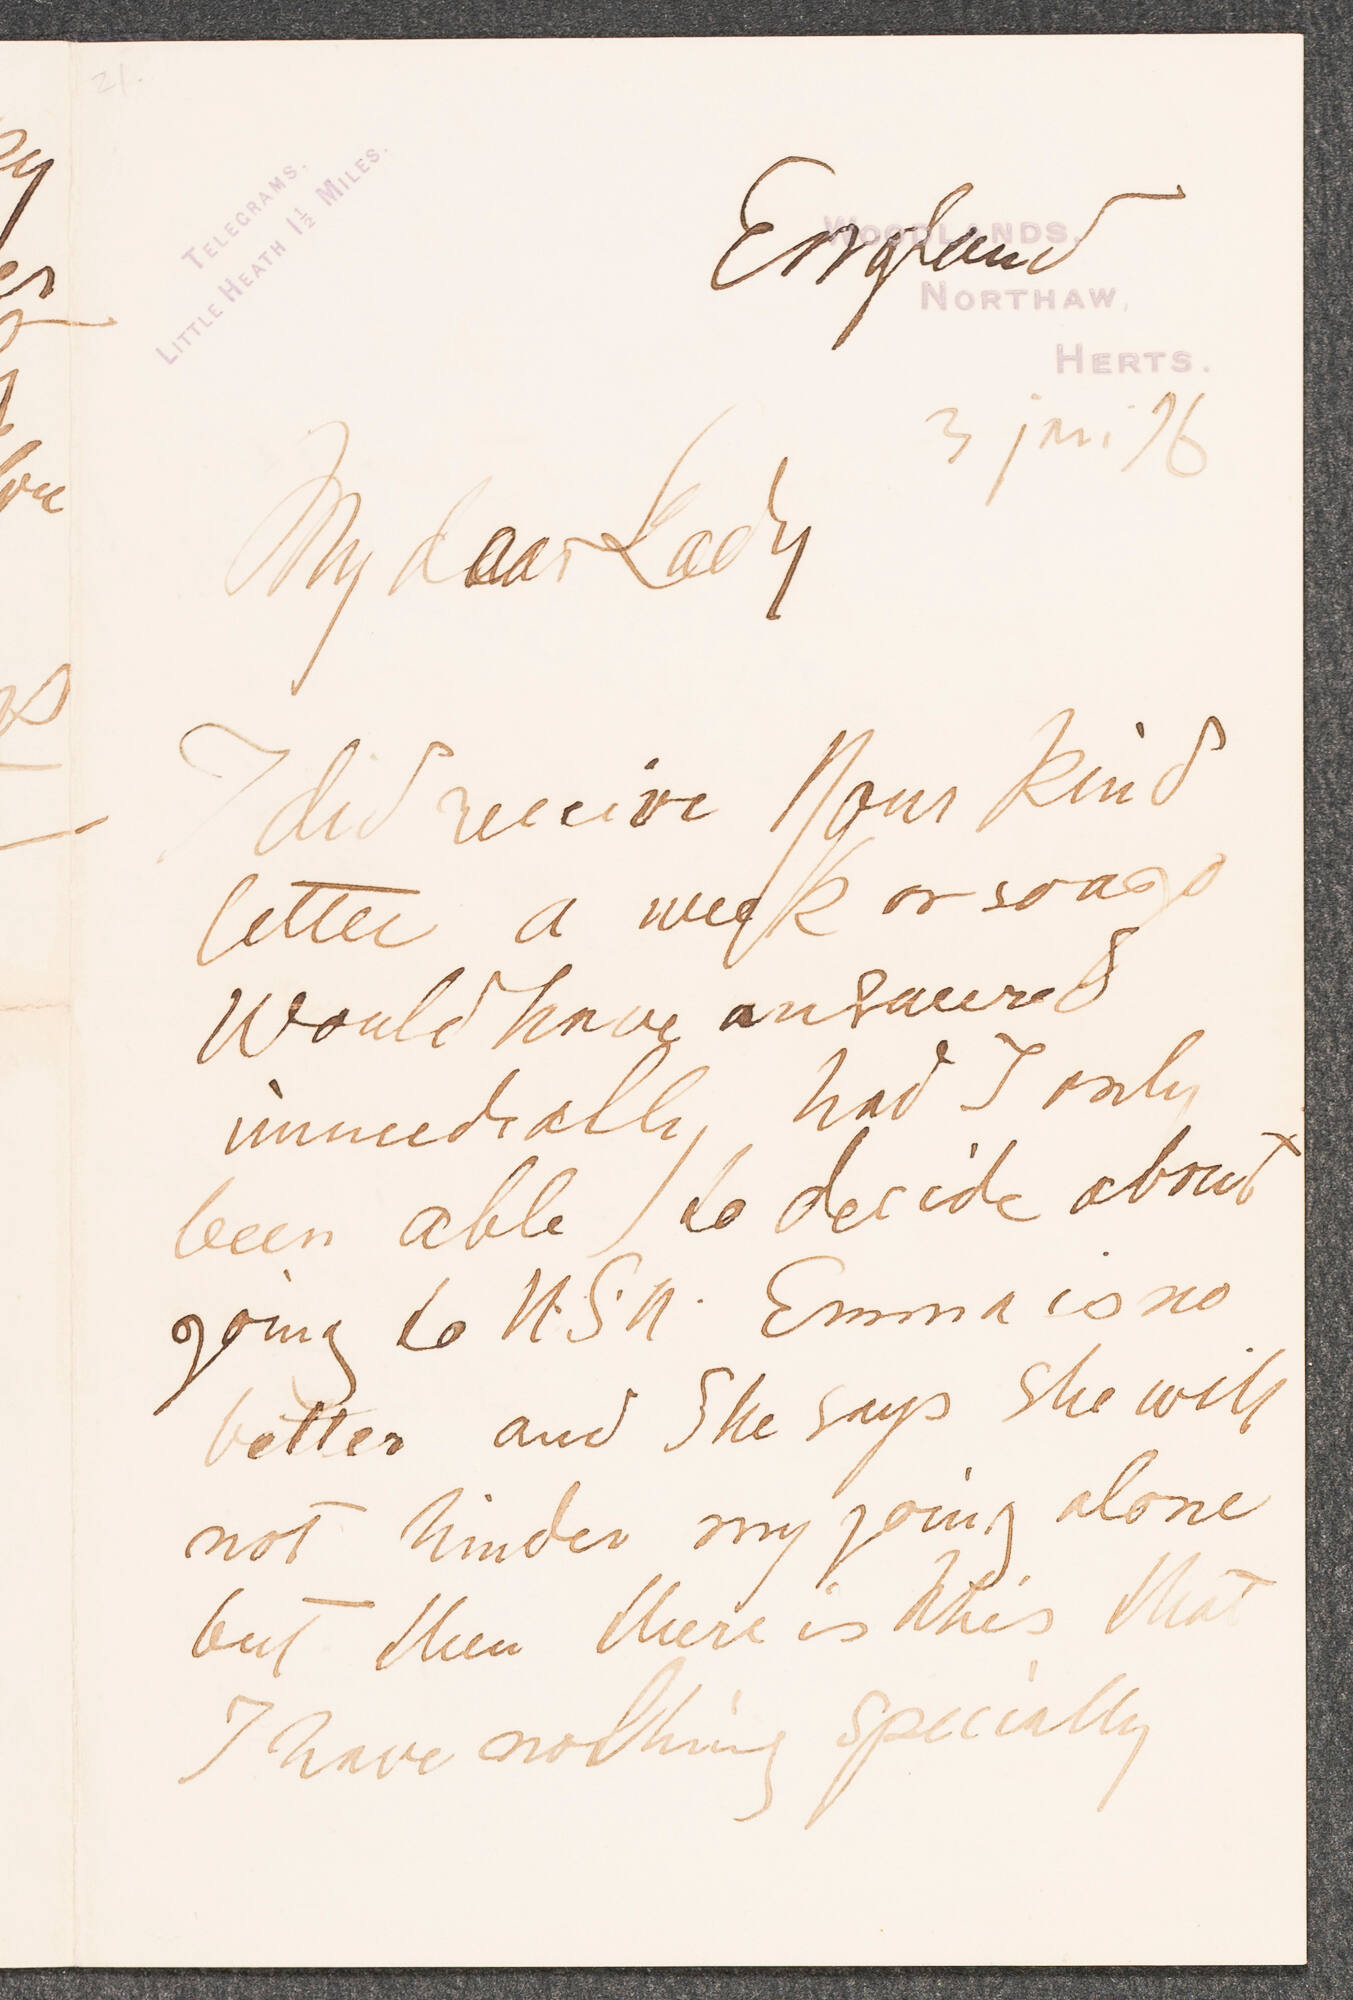 21.
TELEGRAMS.
LITTLE HEATH 1½ MILES.
WOODLANDS.
England
NORTHAW,
HERTS.
3 jan 96
My dear Lady
I did receive your kind
letter a week or so ago
Would have answered
immedially, had I only
been able to decide about
going to U.S.A. Emma is no
better and she says she will
not hinder my going alone
but then there is this that
I have nothing specially